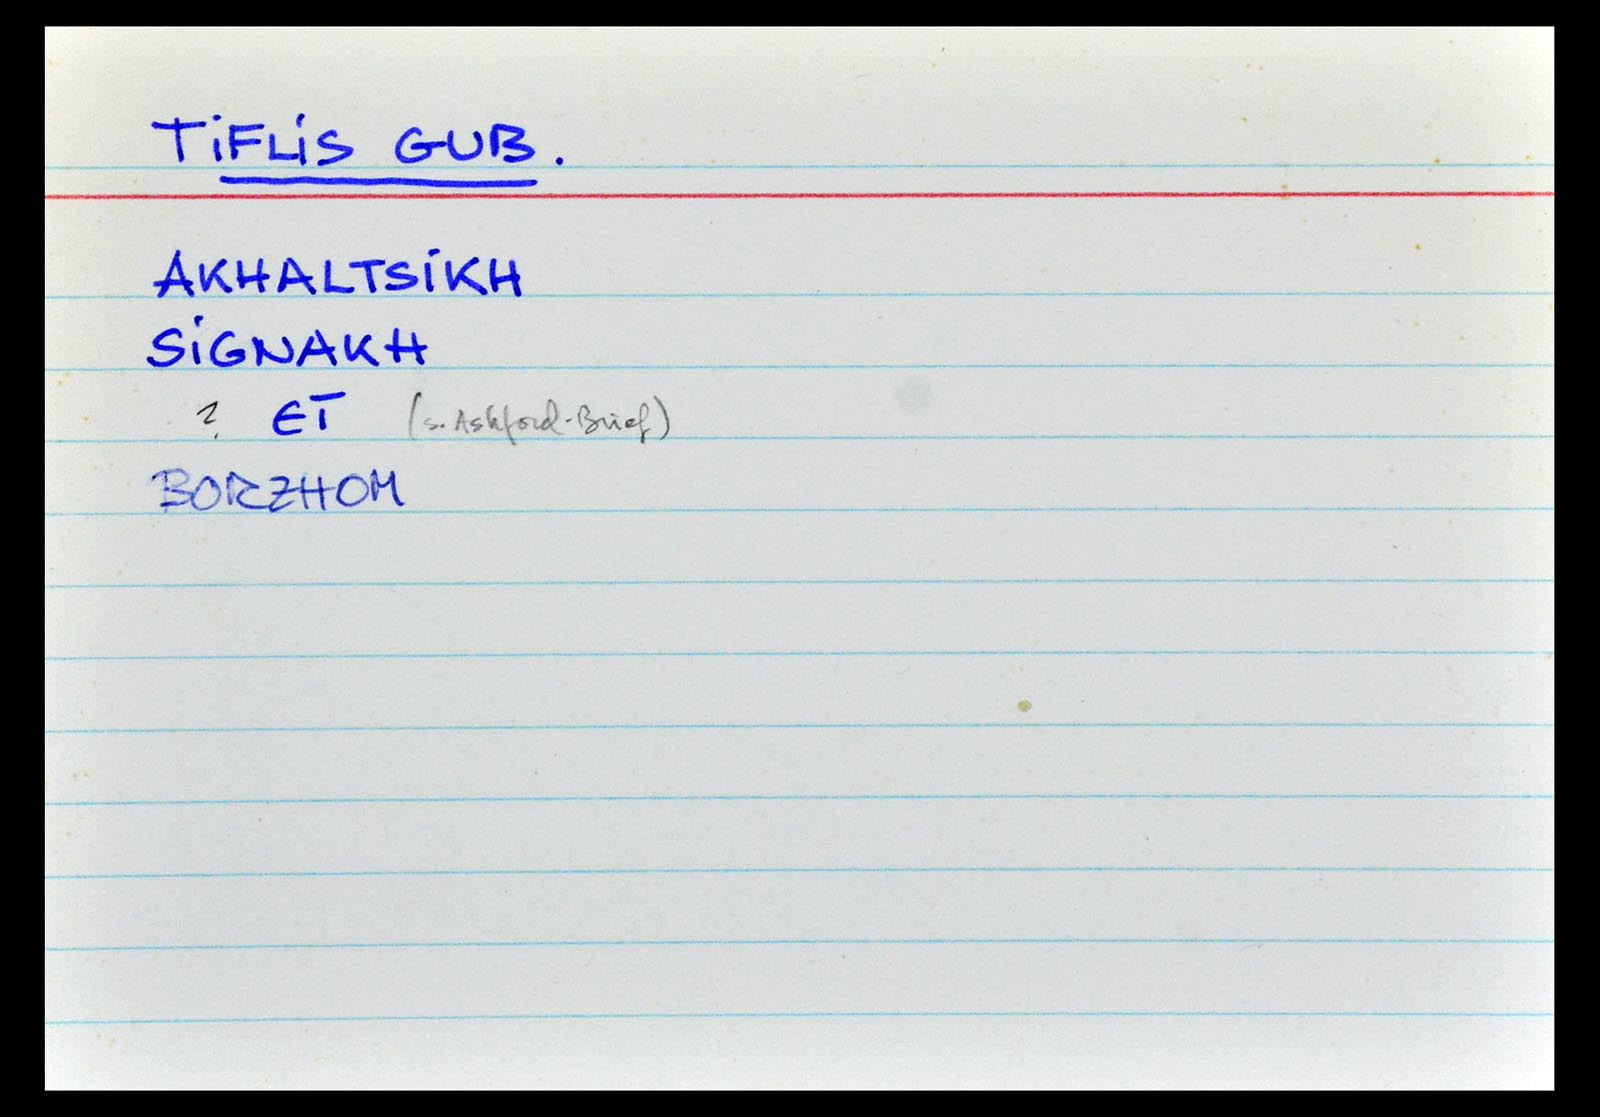 TiFLiS GUB.
AKHALTSiKH
SiGNAKH
? ET (s. Ashford-Brief)
BORZHOM